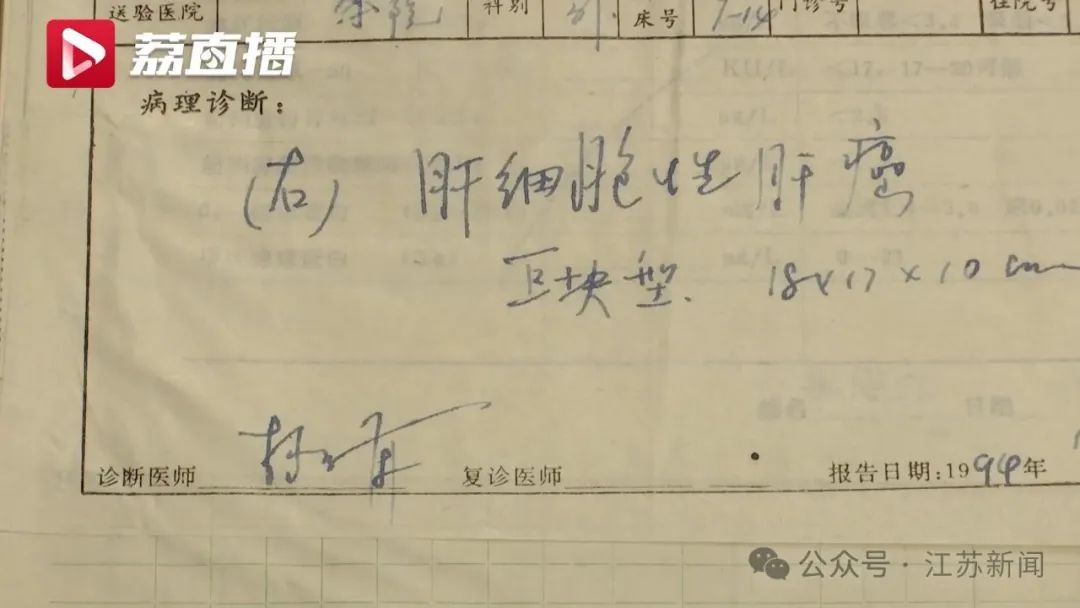 送验医院 本院 科别 外 床号 7-14 门诊号 住院号
荔直播
病理诊断：
(右) 肝细胞性肝癌
巨块型. 18×17×10cm
诊断医师 复诊医师 报告日期:1994年
公众号·江苏新闻